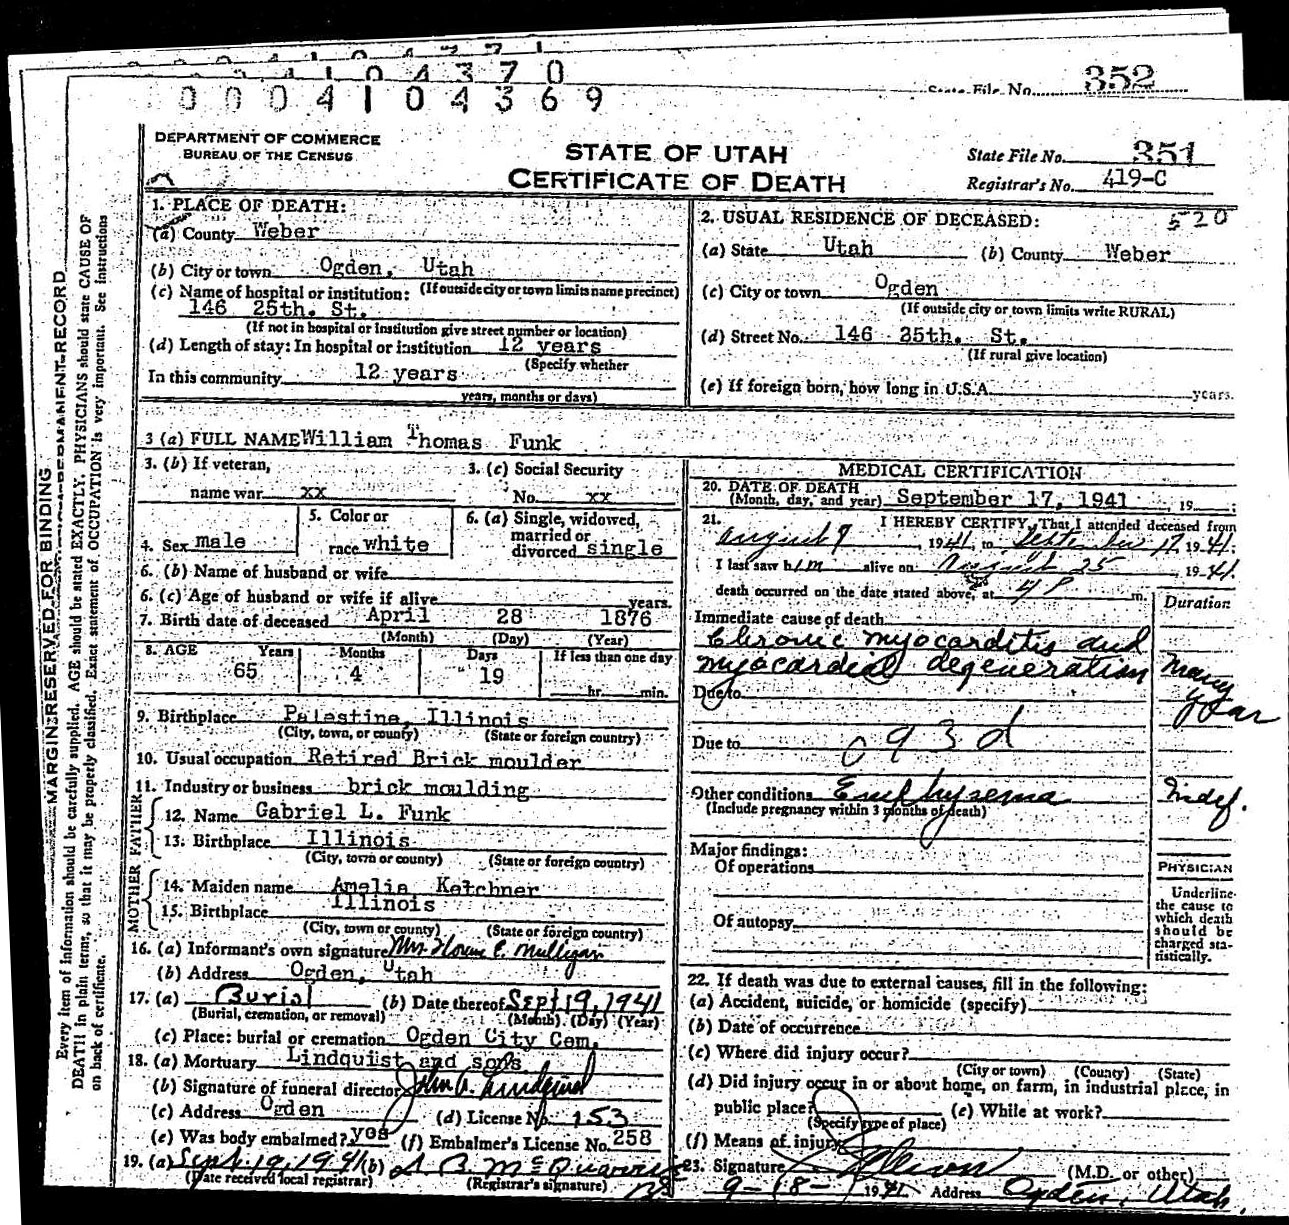 0004104370
State File No. 352
0004104369
DEPARTMENT OF COMMERCE
BUREAU OF THE CENSUS
STATE OF UTAH
CERTIFICATE OF DEATH
State File No. 351
Registrar's No. 419-C
MARGIN RESERVED FOR BINDING
Every item of information should be carefully supplied. AGE should be stated EXACTLY. PHYSICIANS should state CAUSE OF
DEATH in plain terms, so that it may be properly classified. Exact statement of OCCUPATION is very important. See instructions
on back of certificate.
1. PLACE OF DEATH:
(a) County Weber
(b) City or town Ogden, Utah
(If outside city or town limits name precinct)
(c) Name of hospital or institution:
146 25th. St.
(If not in hospital or institution give street number or location)
(d) Length of stay: In hospital or institution 12 years
(Specify whether
In this community 12 years
years, months or days)
2. USUAL RESIDENCE OF DECEASED: 520
(a) State Utah (b) County Weber
(c) City or town Ogden
(If outside city or town limits write RURAL)
(d) Street No. 146 25th. St.
(If rural give location)
(e) If foreign born, how long in U.S.A. years.
3 (a) FULL NAME William Thomas Funk
3. (b) If veteran,
name war xx
3. (c) Social Security
No. xx
4. Sex male
5. Color or
race white
6. (a) Single, widowed,
married or
divorced single
6. (b) Name of husband or wife
6. (c) Age of husband or wife if alive years.
7. Birth date of deceased April 28 1876
(Month) (Day) (Year)
8. AGE Years Months Days If less than one day
65 4 19 hr. min.
9. Birthplace Palestine, Illinois
(City, town, or county) (State or foreign country)
10. Usual occupation Retired Brick moulder
11. Industry or business brick moulding
FATHER
12. Name Gabriel L. Funk
13. Birthplace Illinois
(City, town or county) (State or foreign country)
MOTHER
14. Maiden name Amelia Katchner
15. Birthplace Illinois
(City, town or county) (State or foreign country)
16. (a) Informant's own signature Mrs. E. Mulligan
(b) Address Ogden, Utah
17. (a) Burial (b) Date thereof Sept 19, 1941
(Burial, cremation, or removal) (Month) (Day) (Year)
(c) Place: burial or cremation Ogden City Cem.
18. (a) Mortuary Lindquist and sons
(b) Signature of funeral director John A. Lindquist
(c) Address Ogden (d) License No. 153
(e) Was body embalmed? yes (f) Embalmer's License No. 258
19. (a) Sept. 19, 1941 (b)
(Date received local registrar) (Registrar's signature)
MEDICAL CERTIFICATION
20. DATE OF DEATH
(Month, day, and year) September 17, 1941 , 19 ;
21. I HEREBY CERTIFY, That I attended deceased from
August 9, 1941, to September 17, 1941;
I last saw him alive on August 25, 1941.
death occurred on the date stated above, at 4 P m.
Duration
Immediate cause of death
Chronic myocarditis and
myocardial degeneration many
year
Due to
Due to 093d
Other conditions Emphysema Indef.
(Include pregnancy within 3 months of death)
Major findings:
Of operations
Of autopsy
PHYSICIAN
Underline
the cause to
which death
should be
charged sta-
tistically.
22. If death was due to external causes, fill in the following:
(a) Accident, suicide, or homicide (specify)
(b) Date of occurrence
(c) Where did injury occur?
(City or town) (County) (State)
(d) Did injury occur in or about home, on farm, in industrial place, in
public place? (e) While at work?
(Specify type of place)
(f) Means of injury
23. Signature (M.D. or other)
9-18-1941 Address Ogden, Utah.